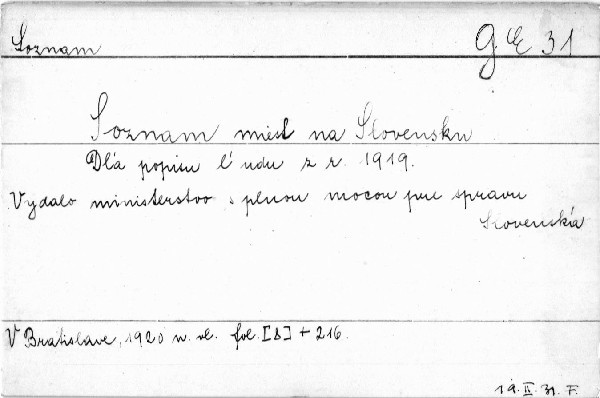 Soznam
g E 31
Soznam miest na Slovensku
Dľa popisu ľudu z r. 1919.
Vydalo ministerstvo s plnou mocou pre spravu
Slovenska
V Bratislave, 1920 n. vl. fol. [8] + 216.
19. II. 31. F.